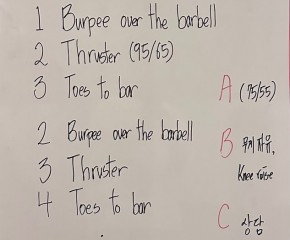 1 Burpee over the barbell
2 Thruster (95/65)
3 Toes to bar
A (75/55)
2 Burpee over the barbell
3 Thruster
4 Toes to bar
B 무게 자유,
Knee raise
C 상담